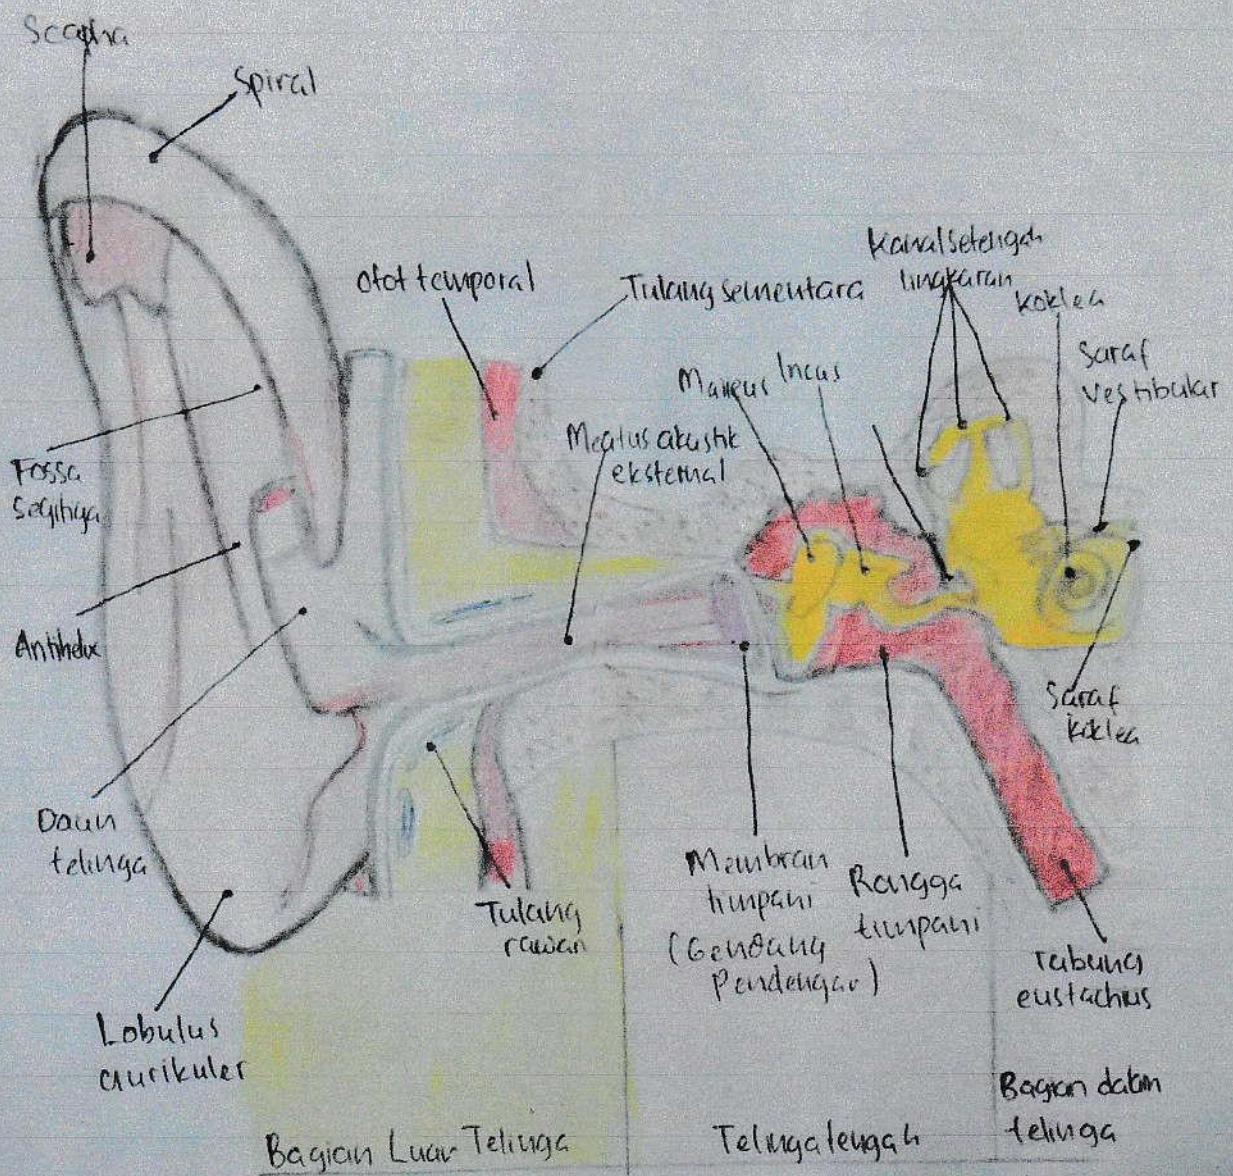 Scapha
Spiral
Otot temporal
Tulang sementara
Kanal setengah
lingkaran
Koklea
Saraf
Vestibular
Maleus
Incus
Meatus akustik
eksternal
Fossa
Segitiga
Antihelix
Daun
telinga
Lobulus
aurikuler
Tulang
rawan
Membran
timpani
(Gendang
Pendengar)
Rongga
timpani
Saraf
koklea
Tabung
eustachius
Bagian Luar Telinga
Telinga tengah
Bagian dalam
telinga